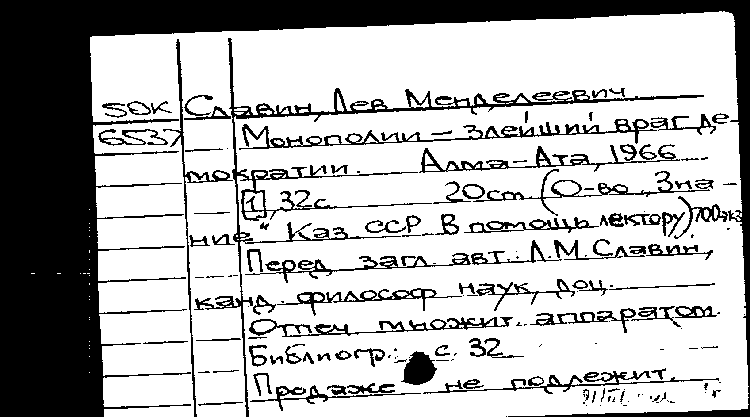 50К Славин, Лев Менделеевич.
6537 Монополии — злейший враг де-
мократии. Алма-Ата, 1966
[1], 32с. 20cm (О-во „Зна-
ние“ Каз ССР В помощь лектору) 700 экз
Перед загл. авт. Л.М. Славин,
канд. философ наук, доц.
Отпеч множит. аппаратом
Библиогр.: с. 32
Продаже не подлежит.